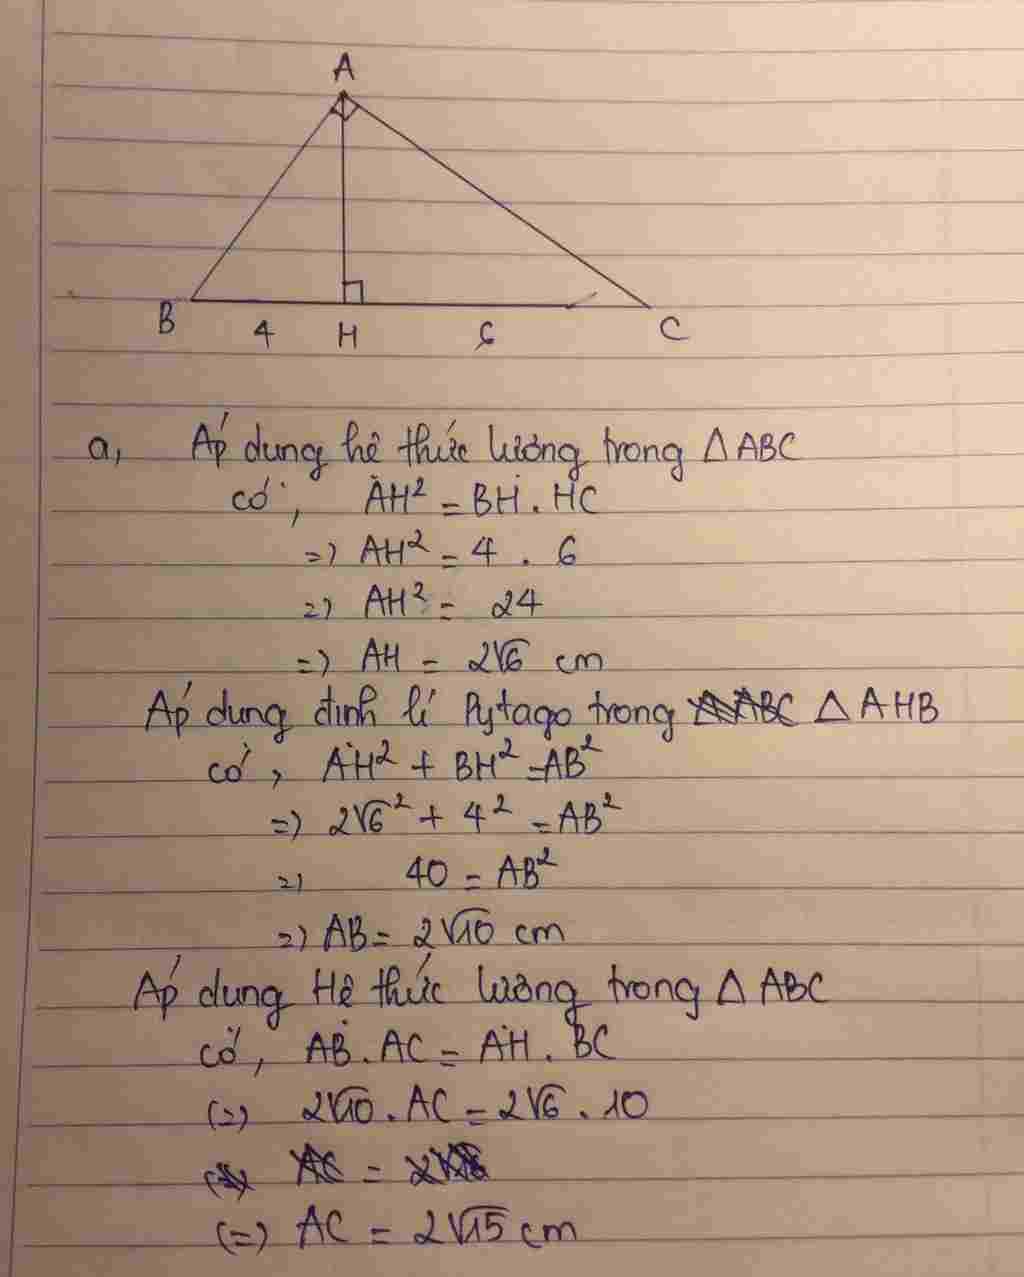 A
B 4 H 6 C
a, Áp dung hê thức lương trong △ABC
có, AH² = BH . HC
=> AH² = 4 . 6
=> AH² = 24
=> AH = 2√6 cm
Áp dung đinh lí Pytago trong △AHB
có, AH² + BH² = AB²
=> 2√6² + 4² = AB²
=> 40 = AB²
=> AB = 2√10 cm
Áp dung Hê thức lương trong △ABC
có, AB . AC = AH . BC
(=) 2√10 . AC = 2√6 . 10
(=) AC = 2√15 cm